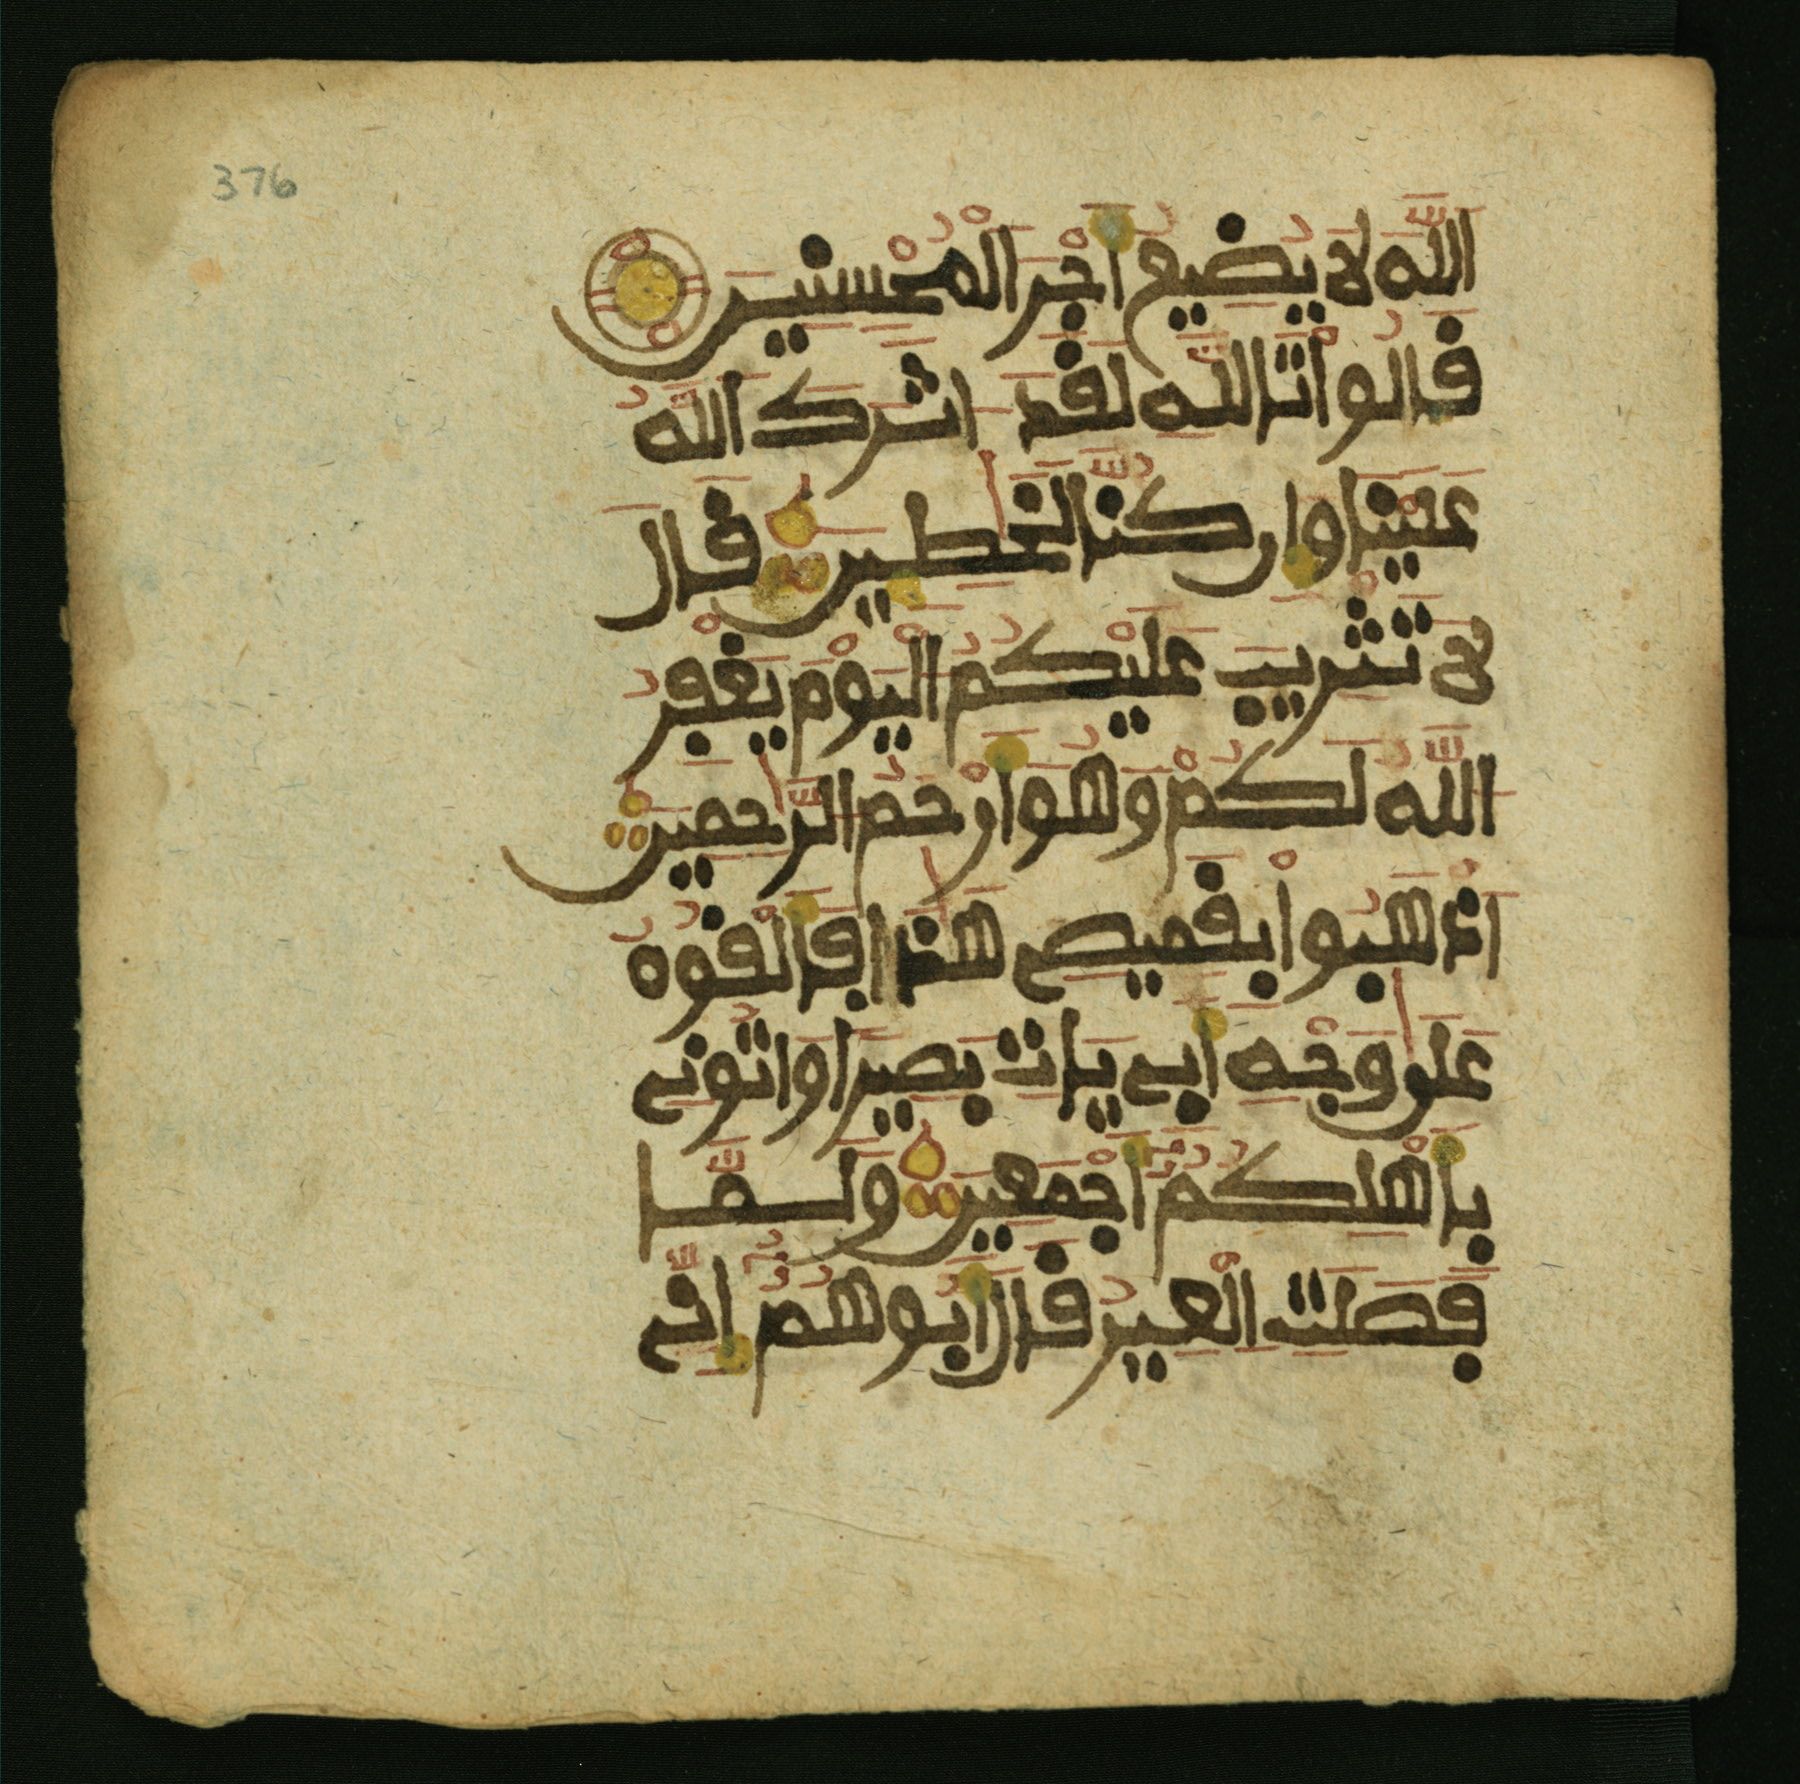 376
اللَّهَ لَا يُضِيعُ أَجْرَ الْمُحْسِنِينَ
قَالُوا تَاللَّهِ لَقَدْ اثَرَكَ اللَّهُ
عَلَيْنَا وَإِن كُنَّا لَخَٰطِـِٔينَ قَالَ
لَا تَثْرِيبَ عَلَيْكُمُ الْيَوْمَ يَغْفِرُ
اللَّهُ لَكُمْ وَهُوَ أَرْحَمُ الرَّٰحِمِينَ
اذْهَبُوا بِقَمِيصِي هَٰذَا فَأَلْقُوهُ
عَلَىٰ وَجْهِ أَبِي يَاتِ بَصِيرًا وَاتُونِي
بِأَهْلِكُمُ أَجْمَعِينَ وَلَمَّا
فَصَلَتِ الْعِيرُ قَالَ أَبُوهُمُ إِنِّي